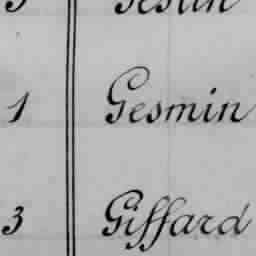 1 Gesmin
3 Giffard